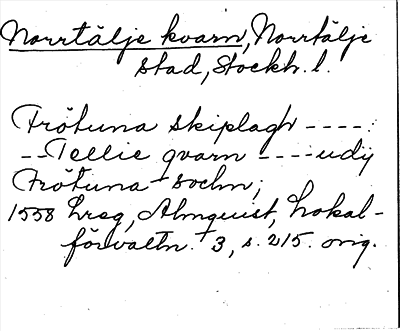 Norrtälje kvarn, Norrtälje
stad, Stockh. l.
Frötuna skiplagh ----:
--Tellie qvarn ----udij
Frötuna sochn;
1558 Lreg, Almquist, Lokal-
förvaltn. 3, s. 215. orig.